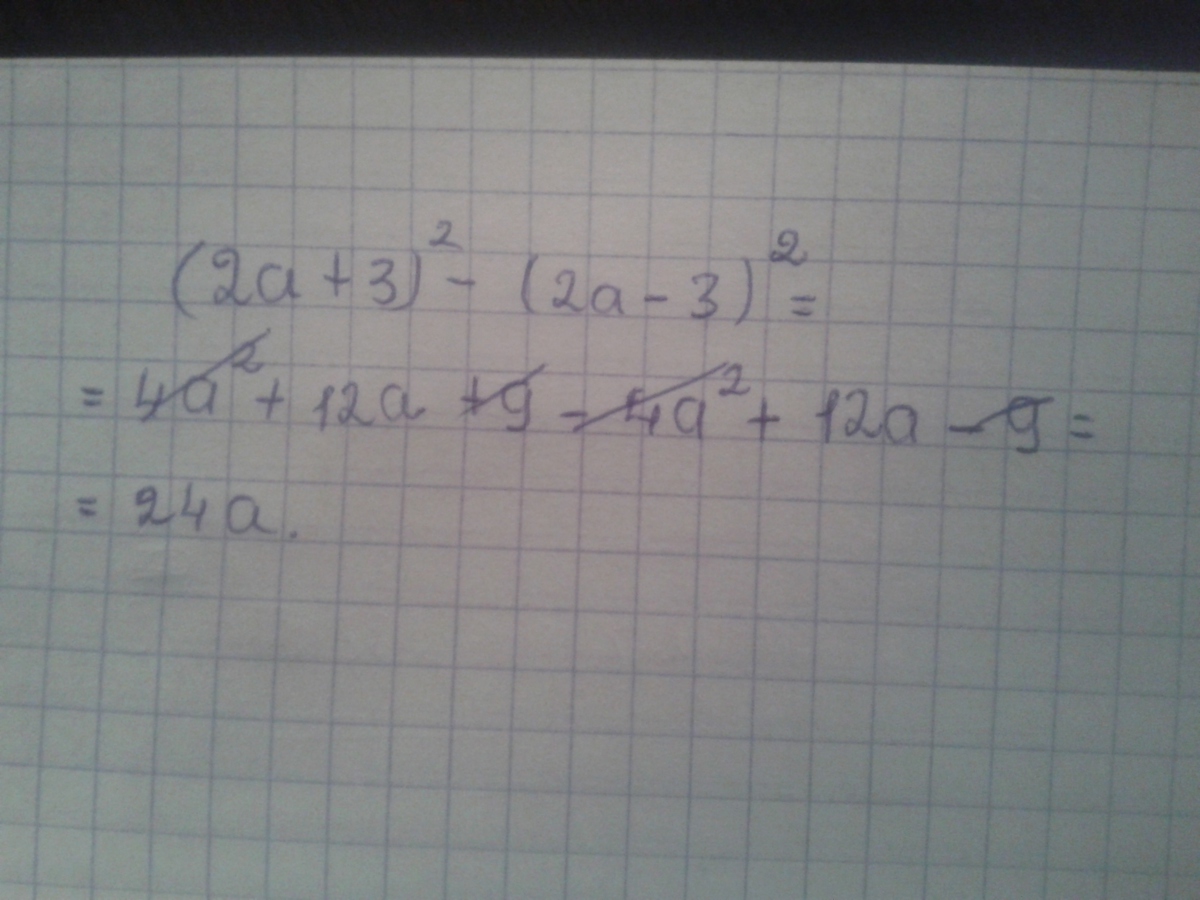 (2a+3)² - (2a-3)² =
= 4a² + 12a + 9 - 4a² + 12a - 9 =
= 24a.